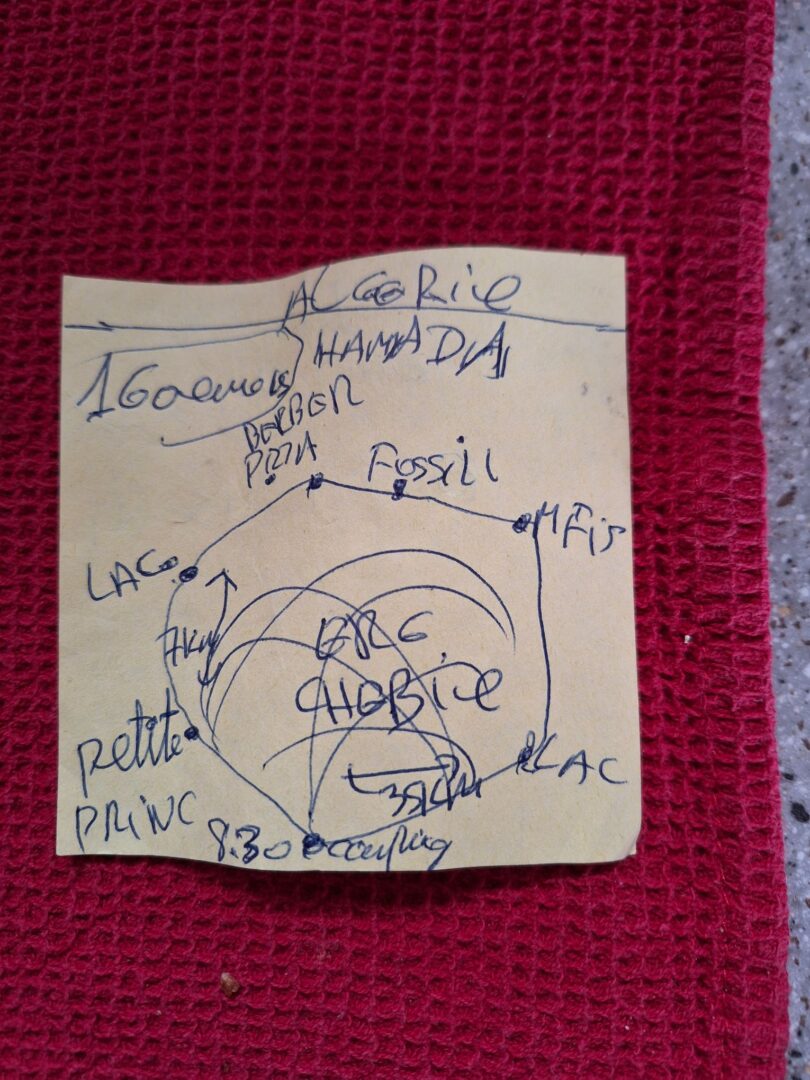 ALGERiE
HAMADA
BERBER
PIZZA
FossiLL
MFis
LAC
7km
ERG
CHEBiE
petite
PRiNC
LAC
35KM
8.30 camping